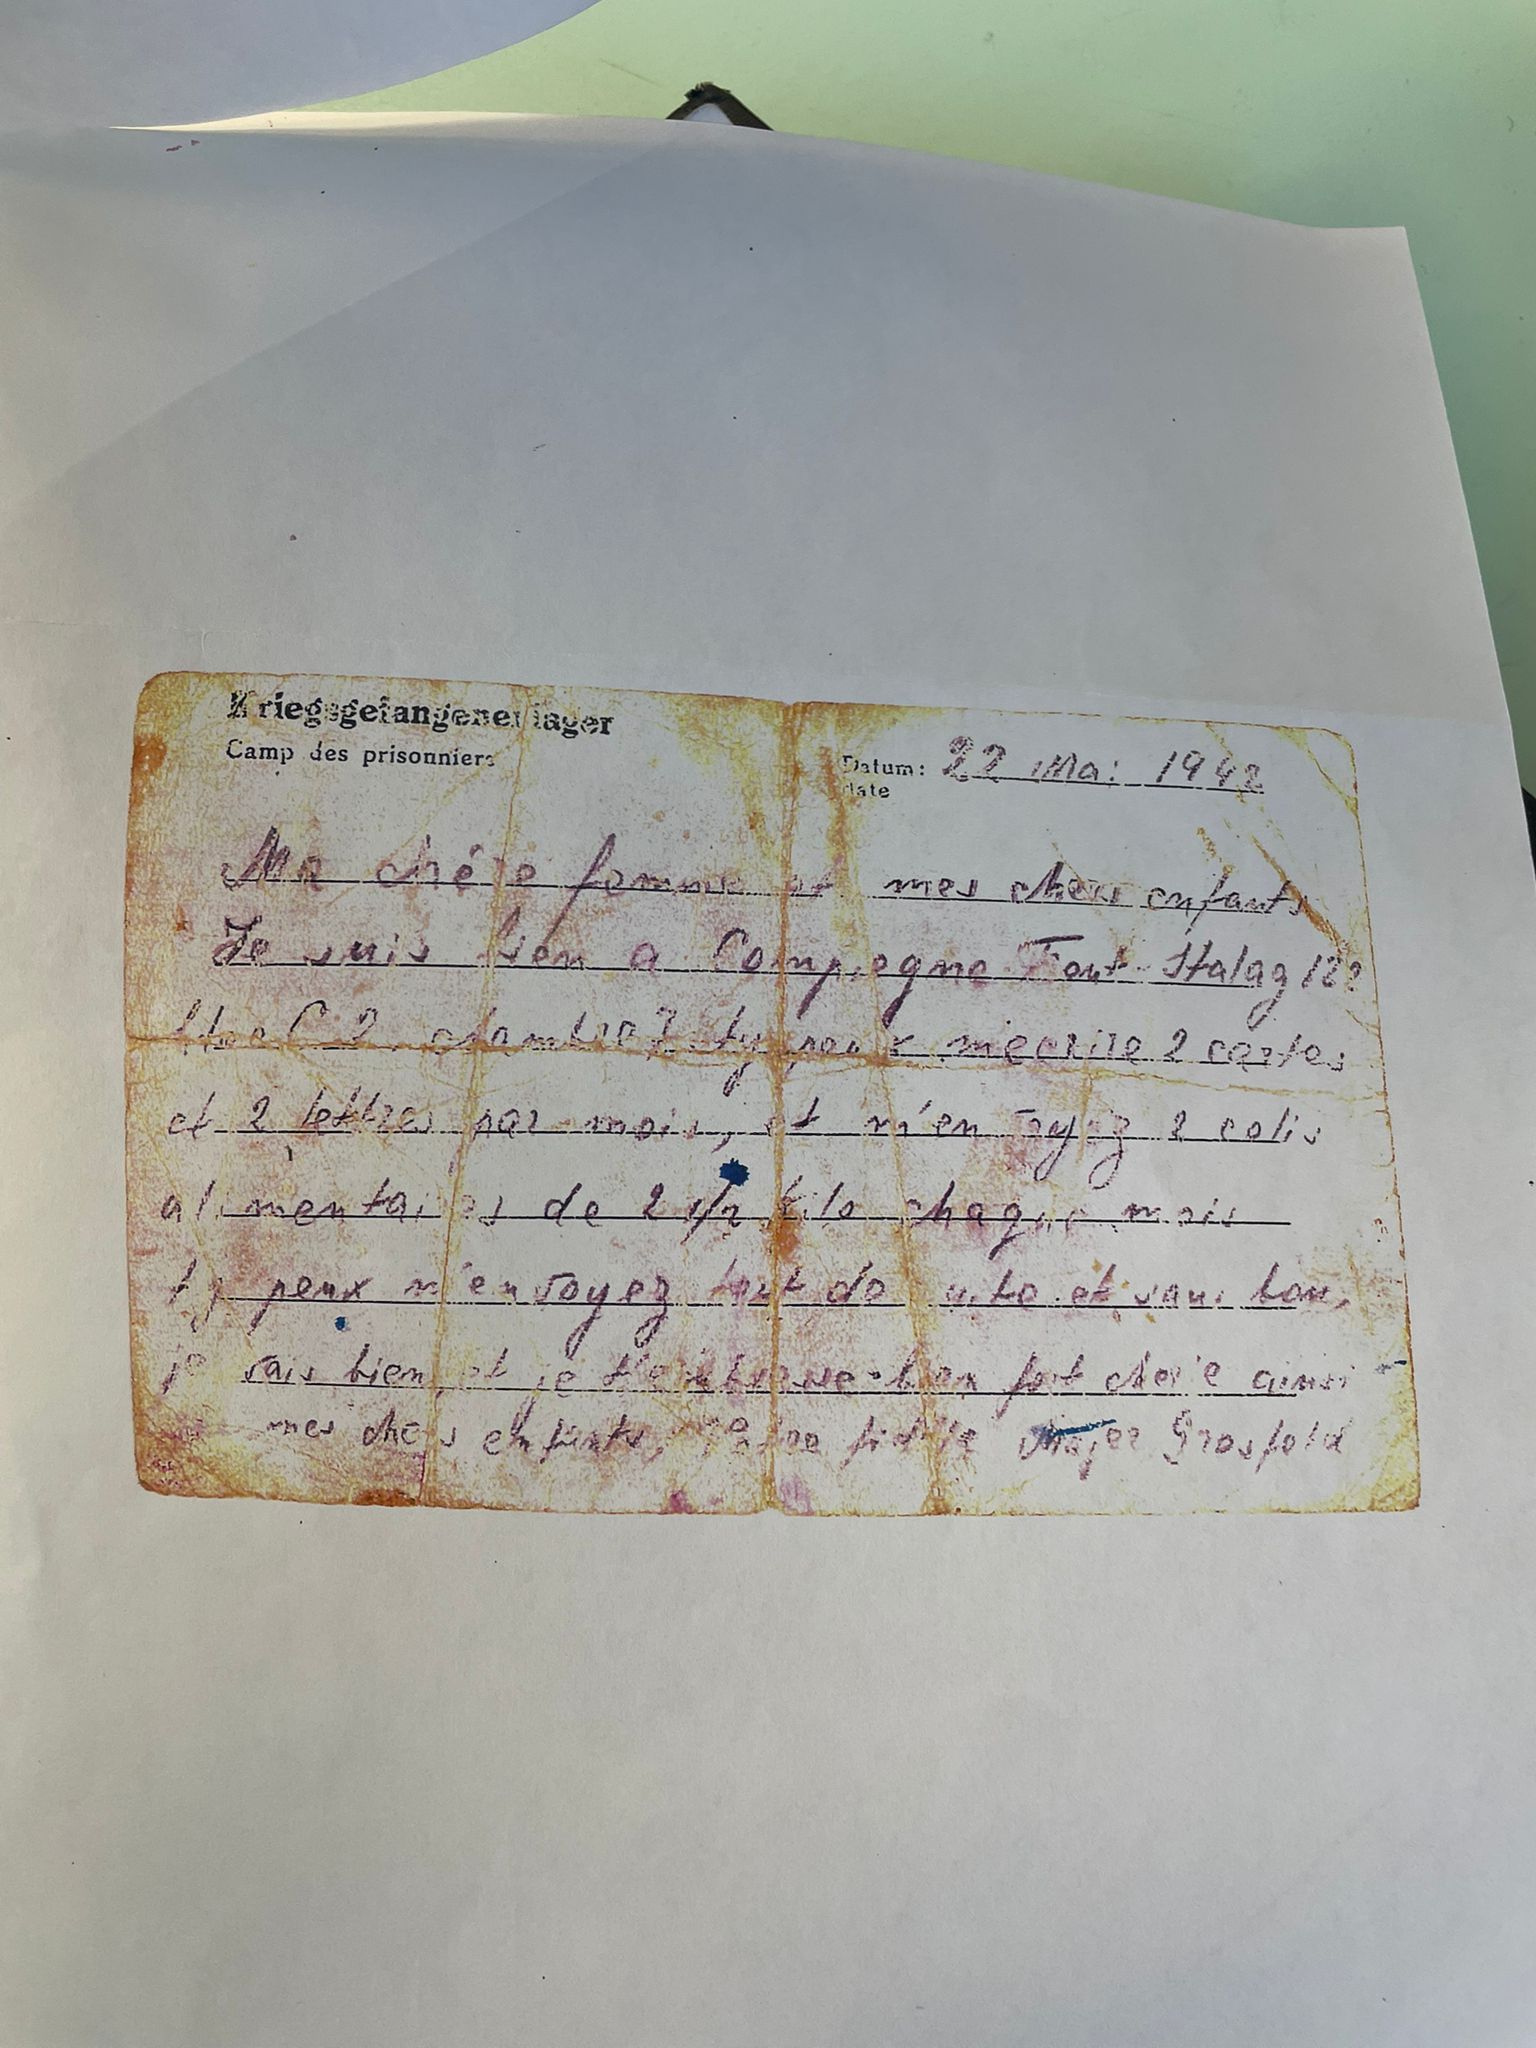 Kriegsgefangenenlager
Camp des prisonniers
Datum: 22 Mai 1942
date
Ma chére femme et mes chers enfants
Je suis bien a Compiegne Font-Stalag 122
bloc C 2. chambre 7. ty peux miecrire 2 cartes
et 2 lettres par mois, et m'envoyez 2 colis
alimentaires de 2 1/2 kilo chaque mois
ty peux m'envoyez tout de suite et sans bon,
je vais bien, et je t'embrasse bien fort cherie ainsi
mes chers enfants, fidele Majer Grosfeld